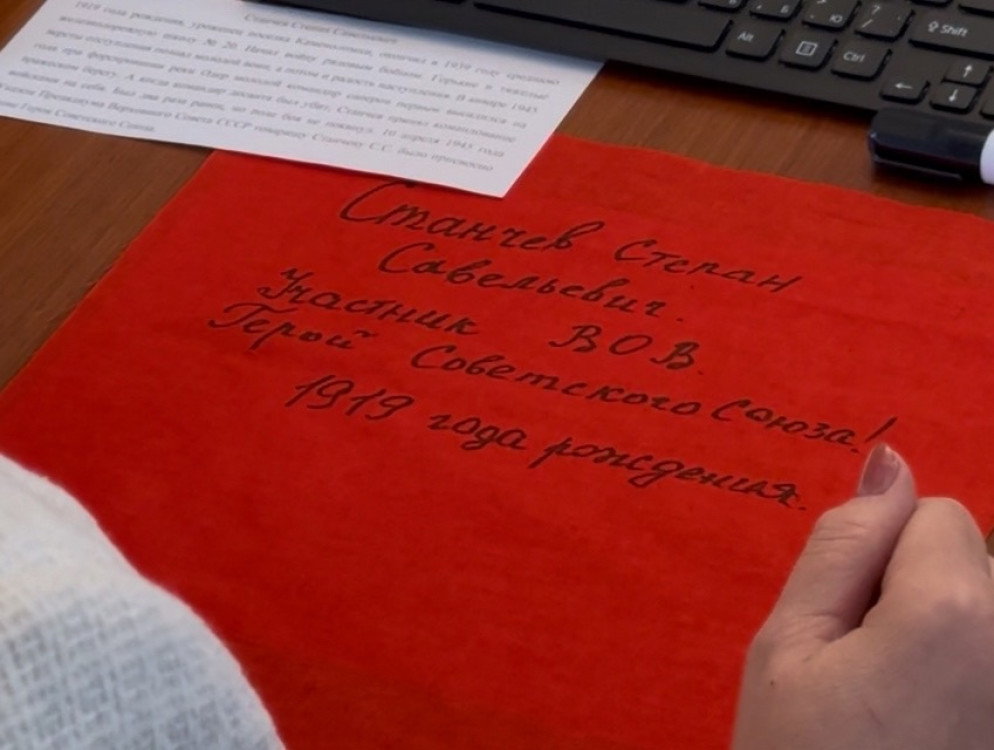 Станчев Степан Савельевич
1919 года рождения, уроженец поселка Каменоломни, окончил в 1939 году среднюю
железнодорожную школу № 20. Начал войну рядовым бойцом. Горькие и тяжелые
версты отступления познал молодой воин, а потом и радость наступления. В январе 1945
года при форсировании реки Одер молодой командир саперов первым высадился на
вражеском берегу. А когда командир десанта был убит, Станчев принял командование
войсками на себя. Был два раза ранен, но поле боя не покинул. 10 апреля 1945 года
Указом Президиума Верховного Совета СССР товарищу Станчеву С.С. было присвоено
Героя Советского Союза.
Станчев Степан
Савельевич.
Участник ВОВ.
Герой Советского Союза!
1919 года рождения.
Alt
Ctrl
⇧ Shift
Ю
? /
←
↑
↓